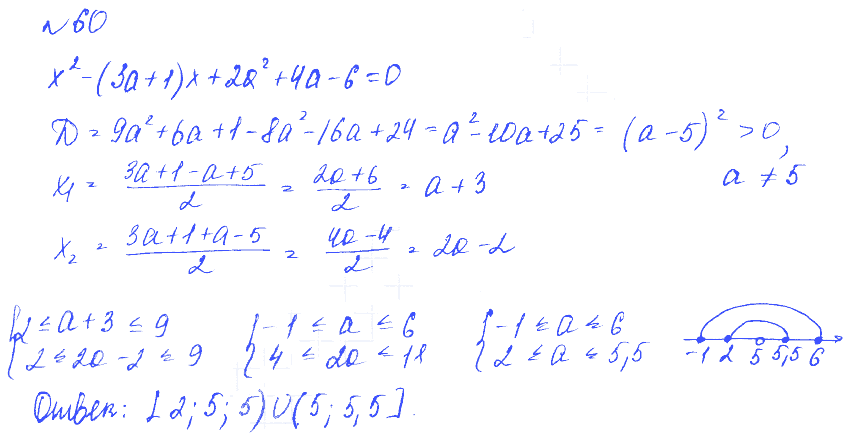 № 60
x² - (3a+1)x + 2a² + 4a - 6 = 0
D = 9a² + 6a + 1 - 8a² - 16a + 24 = a² - 10a + 25 = (a-5)² > 0,
a ≠ 5
x₁ = (3a+1-a+5)/2 = (2a+6)/2 = a+3
x₂ = (3a+1+a-5)/2 = (4a-4)/2 = 2a-2
{2 ≤ a+3 ≤ 9 {-1 ≤ a ≤ 6 {-1 ≤ a ≤ 6
{2 ≤ 2a-2 ≤ 9 {4 ≤ 2a ≤ 11 {2 ≤ a ≤ 5,5
-1 2 5 5,5 6
Ответ: [2; 5; 5) ∪ (5; 5,5].